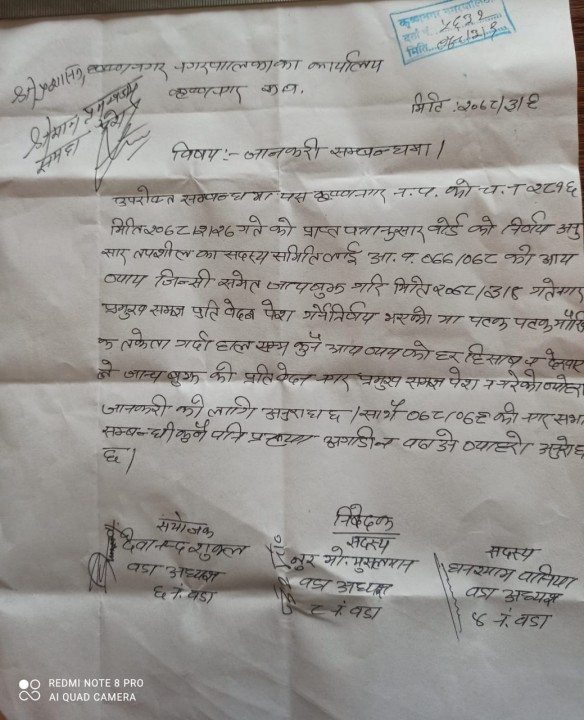 कृष्णनगर नगरपालिका
दर्ता नं. ५६२१
मिति
श्री कृष्णनगर नगरपालिकाको कार्यालय
कृष्णनगर क.व.
श्रीमान
समक्ष
मिति: २०६८।३।९
विषय:- जानकारी सम्बन्धमा।
उपरोक्त सम्बन्धमा यस कृष्णनगर न.प. को च.नं २८१६
मिति २०६८।२।२६ गते को प्राप्त पत्रानुसार बोर्ड को निर्णय अनु
सार तपशील का सदस्य समितिलाई आ.व. ०६६/०६८ को आय
व्याय जिन्सी समेत जाचबुझ गरि मिति २०६८।३।९ गते
प्रमुख समक्ष प्रतिवेदन पेश गर्ने निर्णय भएको मा पटक पटक
ताकेता गर्दा हाल सम्म कुनै आय व्यय को हर हिसाब न
ले जाच बुझ को प्रतिवेदन प्रमुख समक्ष पेश न गरेको
जानकारी को लागि अनुरोध छ। साथै ०६८/०६९ को नगर सभा
सम्बन्धी कुनै पनि प्रक्रिया अगाडी न बढाउने अनुरोध
छ।
निवेदक
संयोजक
देवानन्द शुक्ल
वडा अध्यक्ष
६ नं. वडा
सदस्य
नुर मो. मुसलमान
वडा अध्यक्ष
८ नं. वडा
सदस्य
घनश्याम
वडा अध्यक्ष
४ नं. वडा
REDMI NOTE 8 PRO
AI QUAD CAMERA